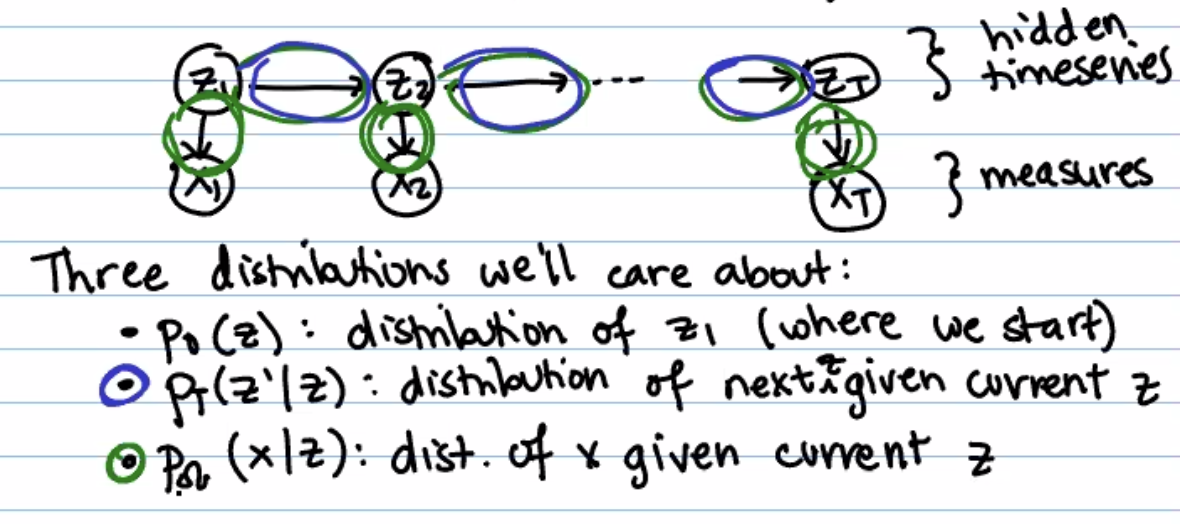 z₁ z₂ --- z_T } hidden timeseries
x₁ x₂ x_T } measures
Three distributions we'll care about:
• p₀(z): distribution of z₁ (where we start)
• p_T(z'|z): distribution of next z given current z
• p_Ω(x|z): dist. of x given current z